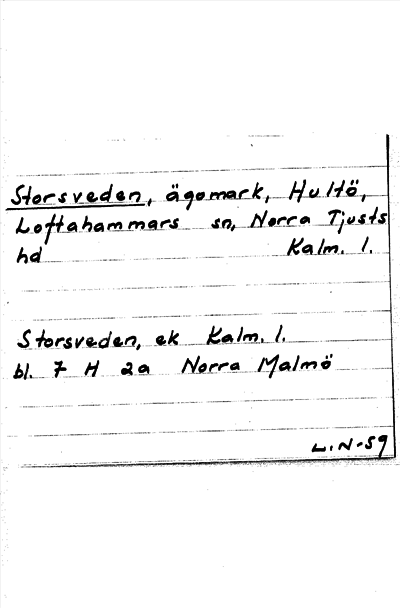 Storsveden, ägomark, Hultö,
Loftahammars sn, Norra Tjusts
hd Kalm. l.
Storsveden, ek Kalm. l.
bl. 7 H 2a Norra Malmö
L.N-59